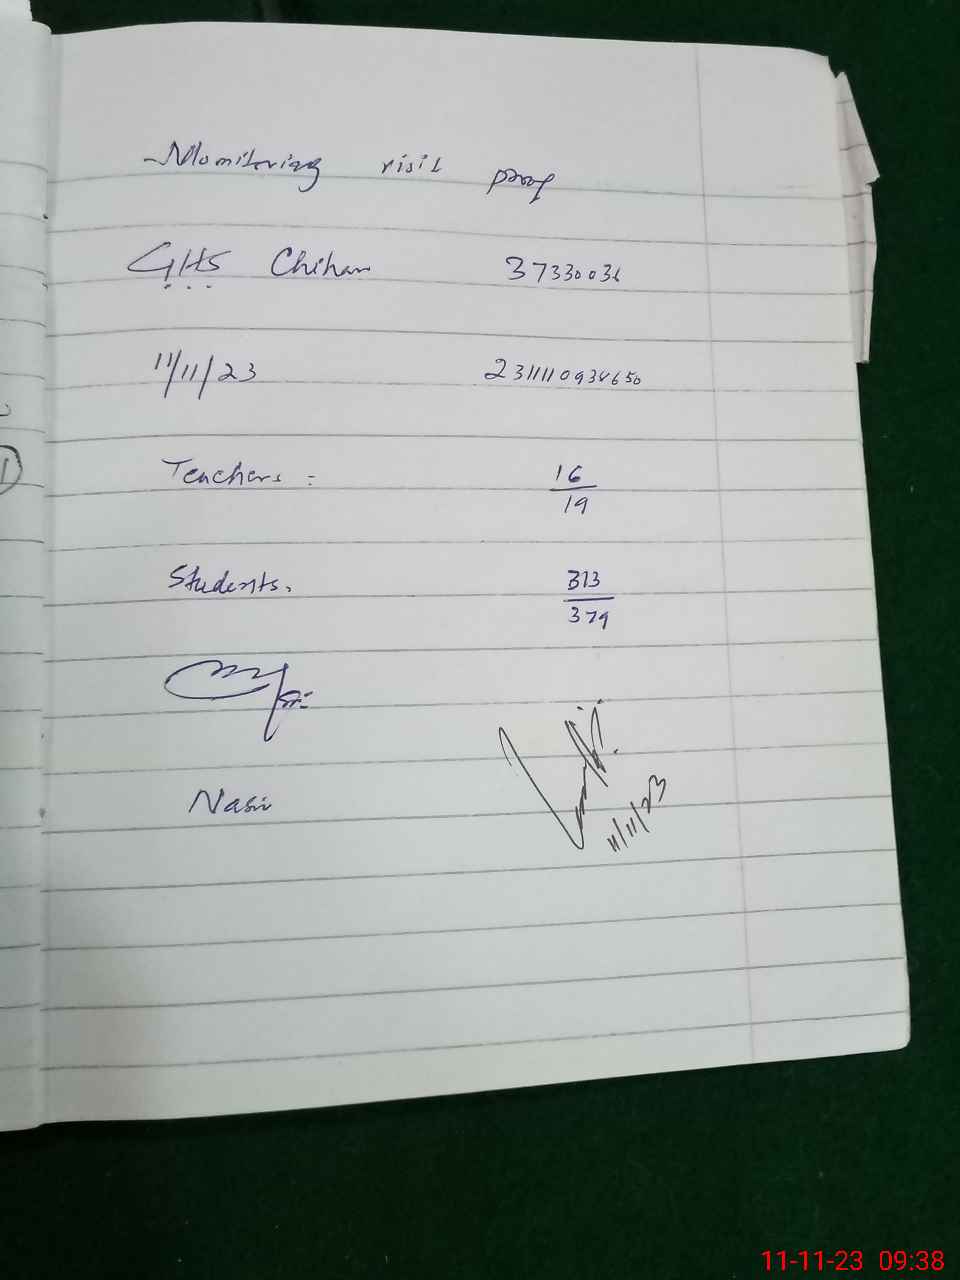 Monitoring visit proof
GHS Chihan 37330036
11/11/23
Teachers : 16/19
Students. 313/379
Nasir
11/11/23
11-11-23 09:38